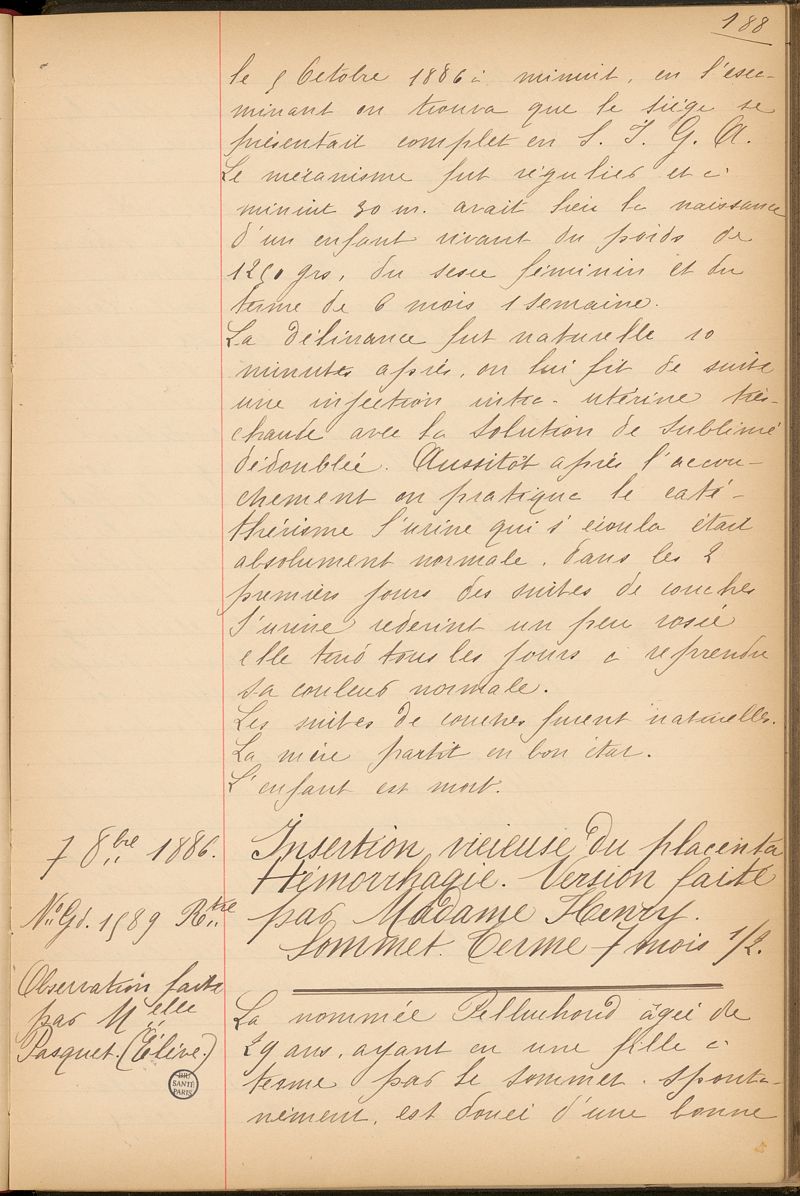 188
le 5 Octobre 1886 à minuit, en l'exa-
minant on trouva que le siège se
présentait complet en S. I. G. A.
Le mécanisme fut régulier et à
minuit 30 m. avait lieu la naissance
d'un enfant vivant du poids de
1250 grs, du sexe féminin et du
terme de 6 mois 1 semaine.
La délivrance fut naturelle 10
minutes après, on lui fit de suite
une injection intra-utérine très-
chaude avec la solution de sublimé
dédoublée. Aussitôt après l'accou-
chement on pratiqua le cathé-
thérisme l'urine qui s'écoula était
absolument normale. Dans les 2
premiers jours des suites de couches
l'urine redevint un peu rosée
elle tend tous les jours à reprendre
sa couleur normale.
Les suites de couches furent naturelles.
La mère partit en bon état.
L'enfant est mort.
7 8bre 1886.
No Gd. 1589 Rtre
Observation faite
par Melle
Pasquet. (Élève.)
BIU
SANTÉ
PARIS
Insertion vicieuse du placenta
Hémorrhagie. Version faite
par Madame Henry.
Sommet. Terme 7 mois 1/2.
La nommée Belluchoud âgée de
29 ans, ayant eu une fille à
terme par le sommet. sponta-
nément, est douée d'une bonne